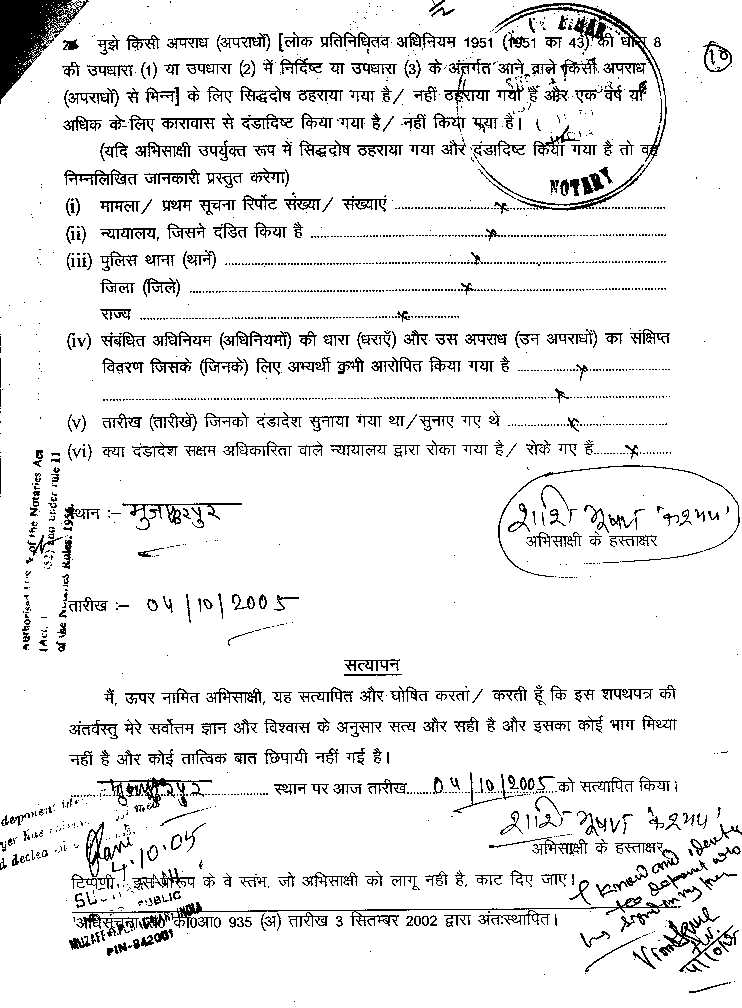 2. मुझे किसी अपराध (अपराधों) [लोक प्रतिनिधितव अधिनियम 1951 (1951 का 43) की धारा 8
की उपधारा (1) या उपधारा (2) में निर्दिष्ट या उपधारा (3) के अंतर्गत आने वाले किसी अपराध
(अपराधों) से भिन्न] के लिए सिद्धदोष ठहराया गया है/ नहीं ठहराया गया है और एक वर्ष या
अधिक के लिए कारावास से दंडादिष्ट किया गया है/ नहीं किया गया है।
(यदि अभिसाक्षी उपर्युक्त रूप में सिद्धदोष ठहराया गया और दंडादिष्ट किया गया है तो वह
निम्नलिखित जानकारी प्रस्तुत करेगा)
NOTARY
10
(i) मामला/ प्रथम सूचना रिर्पोट संख्या/ संख्याएं ........ x ........
(ii) न्यायालय, जिसने दंडित किया है ........ x ........
(iii) पुलिस थाना (थानें) ........ x ........
जिला (जिले) ........ x ........
राज्य ........ x ........
(iv) संबंधित अधिनियम (अधिनियमों) की धारा (धराएँ) और उस अपराध (उन अपराधों) का संक्षिप्त
विवरण जिसके (जिनके) लिए अभ्यर्थी कभी आरोपित किया गया है ........ x ........
........ x ........
(v) तारीख (तारीखें) जिनको दंडादेश सुनाया गया था/सुनाए गए थे ........ x ........
(vi) क्या दंडादेश सक्षम अधिकारिता वाले न्यायालय द्वारा रोका गया है/ रोके गए हैं ........ x ........
स्थान :– मुजफ्फरपुर
शशि भूषण 'कश्यप'
अभिसाक्षी के हस्ताक्षर
of the Notaries Act
under rule 11
of the Notaries Rules, 1956
तारीख :– 04/10/2005
सत्यापन
मैं, ऊपर नामित अभिसाक्षी, यह सत्यापित और घोषित करता/ करती हूँ कि इस शपथपत्र की
अंतर्वस्तु मेरे सर्वोत्तम ज्ञान और विश्वास के अनुसार सत्य और सही है और इसका कोई भाग मिथ्या
नहीं है और कोई तात्विक बात छिपायी नहीं गई है।
मुजफ्फरपुर ........ स्थान पर आज तारीख ...... 04/10/2005 को सत्यापित किया।
शशि भूषण 'कश्यप'
अभिसाक्षी के हस्ताक्षर
deponent
4.10.05
टिप्पणी: इस प्रारूप के वे स्तंभ, जो अभिसाक्षी को लागू नही है, काट दिए जाए।
PUBLIC
I know and identify
अधिसूचना सं0 का0आ0 935 (अ) तारीख 3 सितम्बर 2002 द्वारा अंतःस्थापित।
PIN-842001
4/10/05